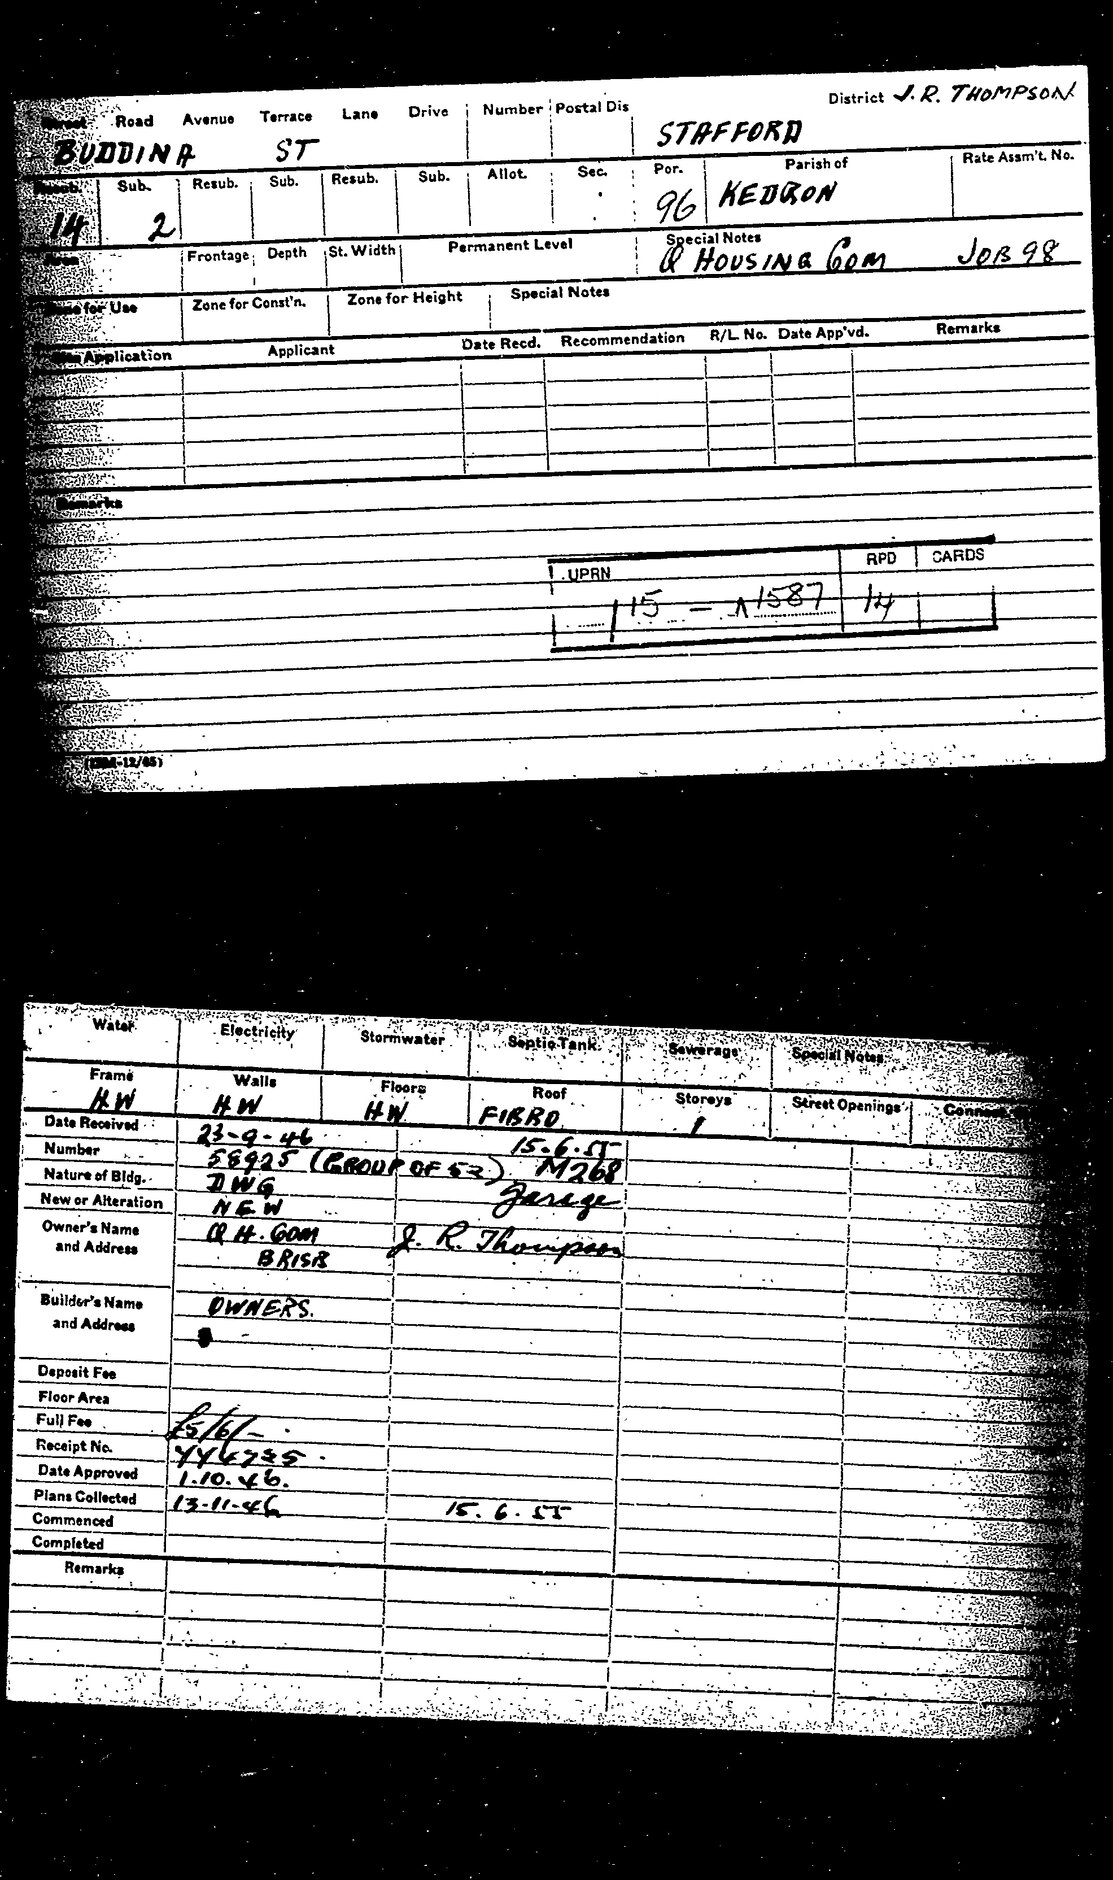 District J. R. THOMPSON
Street Road Avenue Terrace Lane Drive Number Postal Dis
BUDDINA ST STAFFORD
Resub. Sub. Resub. Sub. Resub. Sub. Allot. Sec. Por. Parish of Rate Assm't. No.
14 2 96 KEDRON
Area Frontage Depth St. Width Permanent Level Special Notes
Q HOUSING COM JOB 98
Zone for Use Zone for Const'n. Zone for Height Special Notes
Application Applicant Date Recd. Recommendation R/L. No. Date App'vd. Remarks
Remarks
UPRN RPD CARDS
15 - 1587 14
Water Electricity Stormwater Septic Tank Sewerage Special Notes
Frame Walls Floors Roof Storeys Street Openings
HW HW HW FIBRO 1
Date Received 23-9-46 15.6.55
Number 58925 (GROUP OF 52) M268
Nature of Bldg. DWG Garage
New or Alteration NEW
Owner's Name Q H. COM J. R. Thompson
and Address BRISB
Builder's Name OWNERS.
and Address
Deposit Fee
Floor Area
Full Fee £5/6/-
Receipt No.
Date Approved 1.10.46.
Plans Collected 13-11-46 15.6.55
Commenced
Completed
Remarks